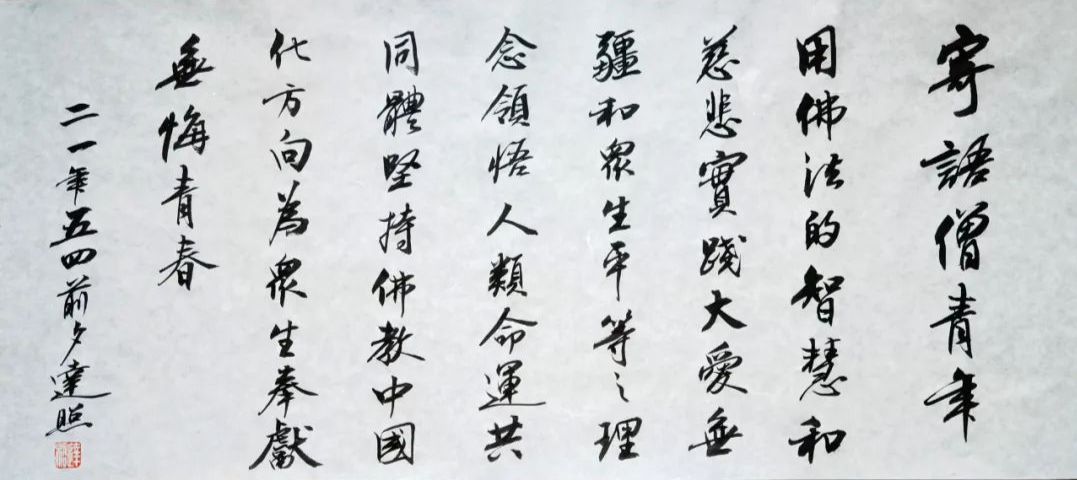 寄語僧青年
用佛法的智慧和
慈悲實踐大愛無
疆和眾生平等之理
念領悟人類命運共
同體堅持佛教中國
化方向為眾生奉獻
無悔青春
二一年五四前夕達照